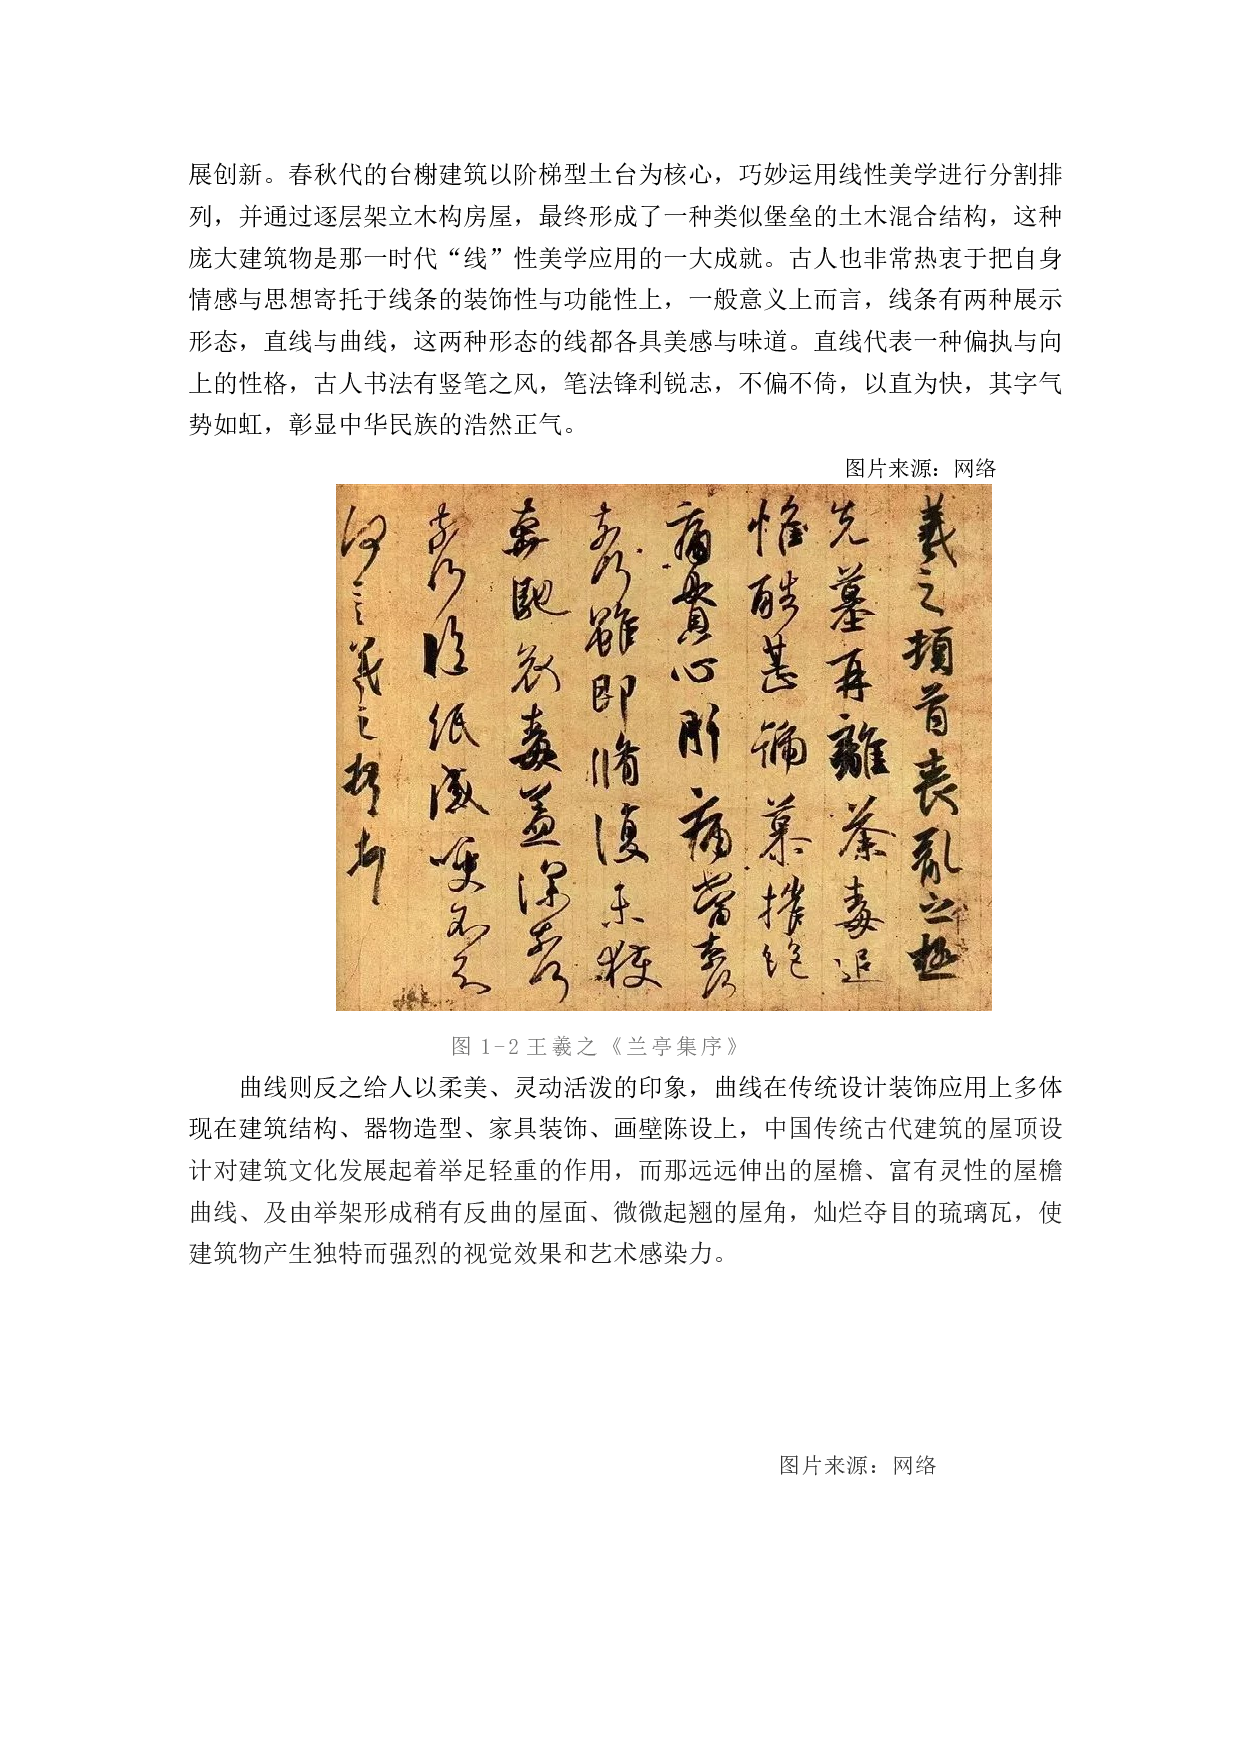 展创新。春秋代的台榭建筑以阶梯型土台为核心，巧妙运用线性美学进行分割排
列，并通过逐层架立木构房屋，最终形成了一种类似堡垒的土木混合结构，这种
庞大建筑物是那一时代“线”性美学应用的一大成就。古人也非常热衷于把自身
情感与思想寄托于线条的装饰性与功能性上，一般意义上而言，线条有两种展示
形态，直线与曲线，这两种形态的线都各具美感与味道。直线代表一种偏执与向
上的性格，古人书法有竖笔之风，笔法锋利锐志，不偏不倚，以直为快，其字气
势如虹，彰显中华民族的浩然正气。
图片来源：网络
羲之頓首喪亂之極
先墓再離荼毒追
惟酷甚號慕摧絕
痛貫心肝痛當奈何
奈何雖即脩復未獲
奔馳哀毒益深奈何
奈何臨紙感哽不知
何言羲之頓首
图 1-2 王羲之《兰亭集序》
曲线则反之给人以柔美、灵动活泼的印象，曲线在传统设计装饰应用上多体
现在建筑结构、器物造型、家具装饰、画壁陈设上，中国传统古代建筑的屋顶设
计对建筑文化发展起着举足轻重的作用，而那远远伸出的屋檐、富有灵性的屋檐
曲线、及由举架形成稍有反曲的屋面、微微起翘的屋角，灿烂夺目的琉璃瓦，使
建筑物产生独特而强烈的视觉效果和艺术感染力。
图片来源：网络